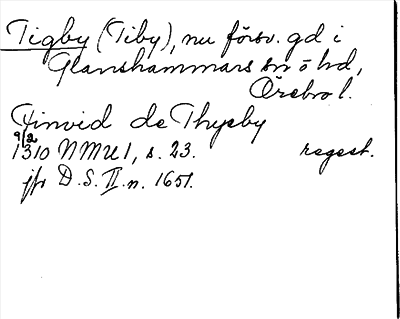 Tigby (Tiby), nu försv. gd i
Glanshammars sn ö hd,
Örebro l.
Finvid de Thyeby
9/2
1310 NMU 1, s. 23. regest.
jfr D.S. II. n. 1651.